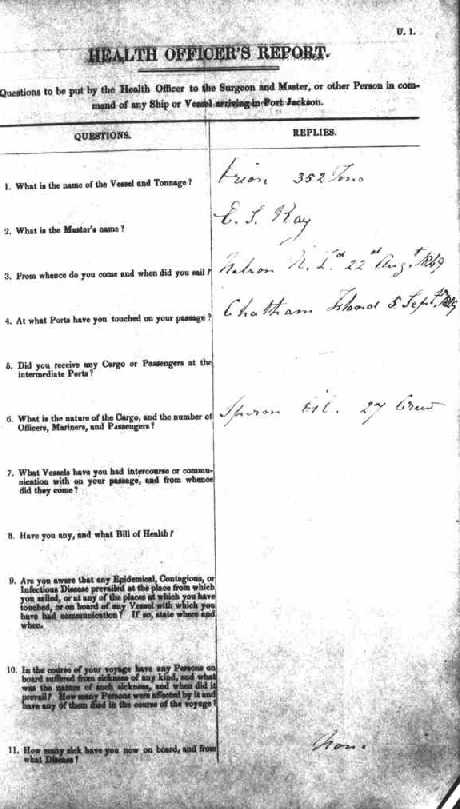 U. 1.
HEALTH OFFICER'S REPORT.
Questions to be put by the Health Officer to the Surgeon and Master, or other Person in com-
mand of any Ship or Vessel arriving in Port Jackson.
QUESTIONS. REPLIES.
1. What is the name of the Vessel and Tonnage? 352 Tons
2. What is the Master's name?
3. From whence do you come and when did you sail? Nelson N. 22nd Augst 1849
4. At what Ports have you touched on your passage? Chatham Island 5 Sept.
5. Did you receive any Cargo or Passengers at the
intermediate Ports?
6. What is the nature of the Cargo, and the number of Sperm Oil. 27 Crew
Officers, Mariners, and Passengers?
7. What Vessels have you had intercourse or commu-
nication with on your passage, and from whence
did they come?
8. Have you any, and what Bill of Health?
9. Are you aware that any Epidemical, Contagious, or
Infectious Disease prevailed at the place from which
you sailed, or at any of the places at which you have
touched, or on board of any Vessel with which you
have had communication? If so, state where and
when.
10. In the course of your voyage have any Persons on
board suffered from sickness of any kind, and what
was the nature of such sickness, and when did it
prevail? How many Persons were affected by it and
have any of them died in the course of the voyage?
11. How many sick have you now on board, and from None
what Disease?